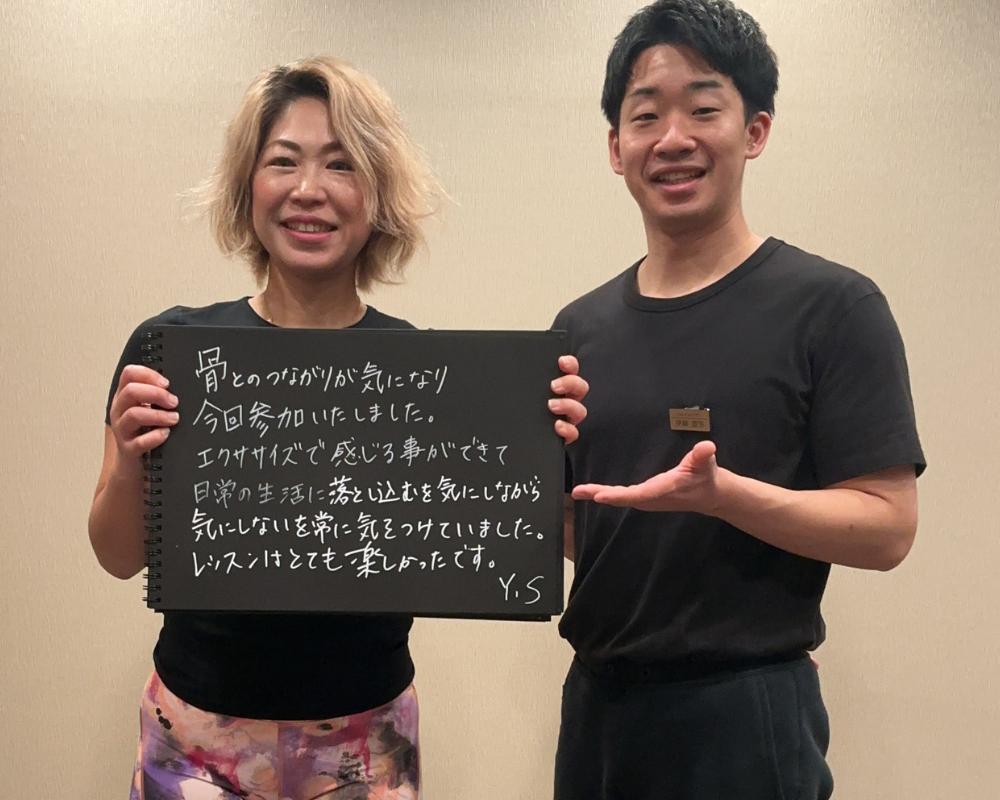 骨とのつながりが気になり
今回参加いたしました。
エクササイズで感じる事ができて
日常の生活に落とし込むを気にしながら
気にしないを常に気をつけていました。
レッスンはとても楽しかったです。
Y.S